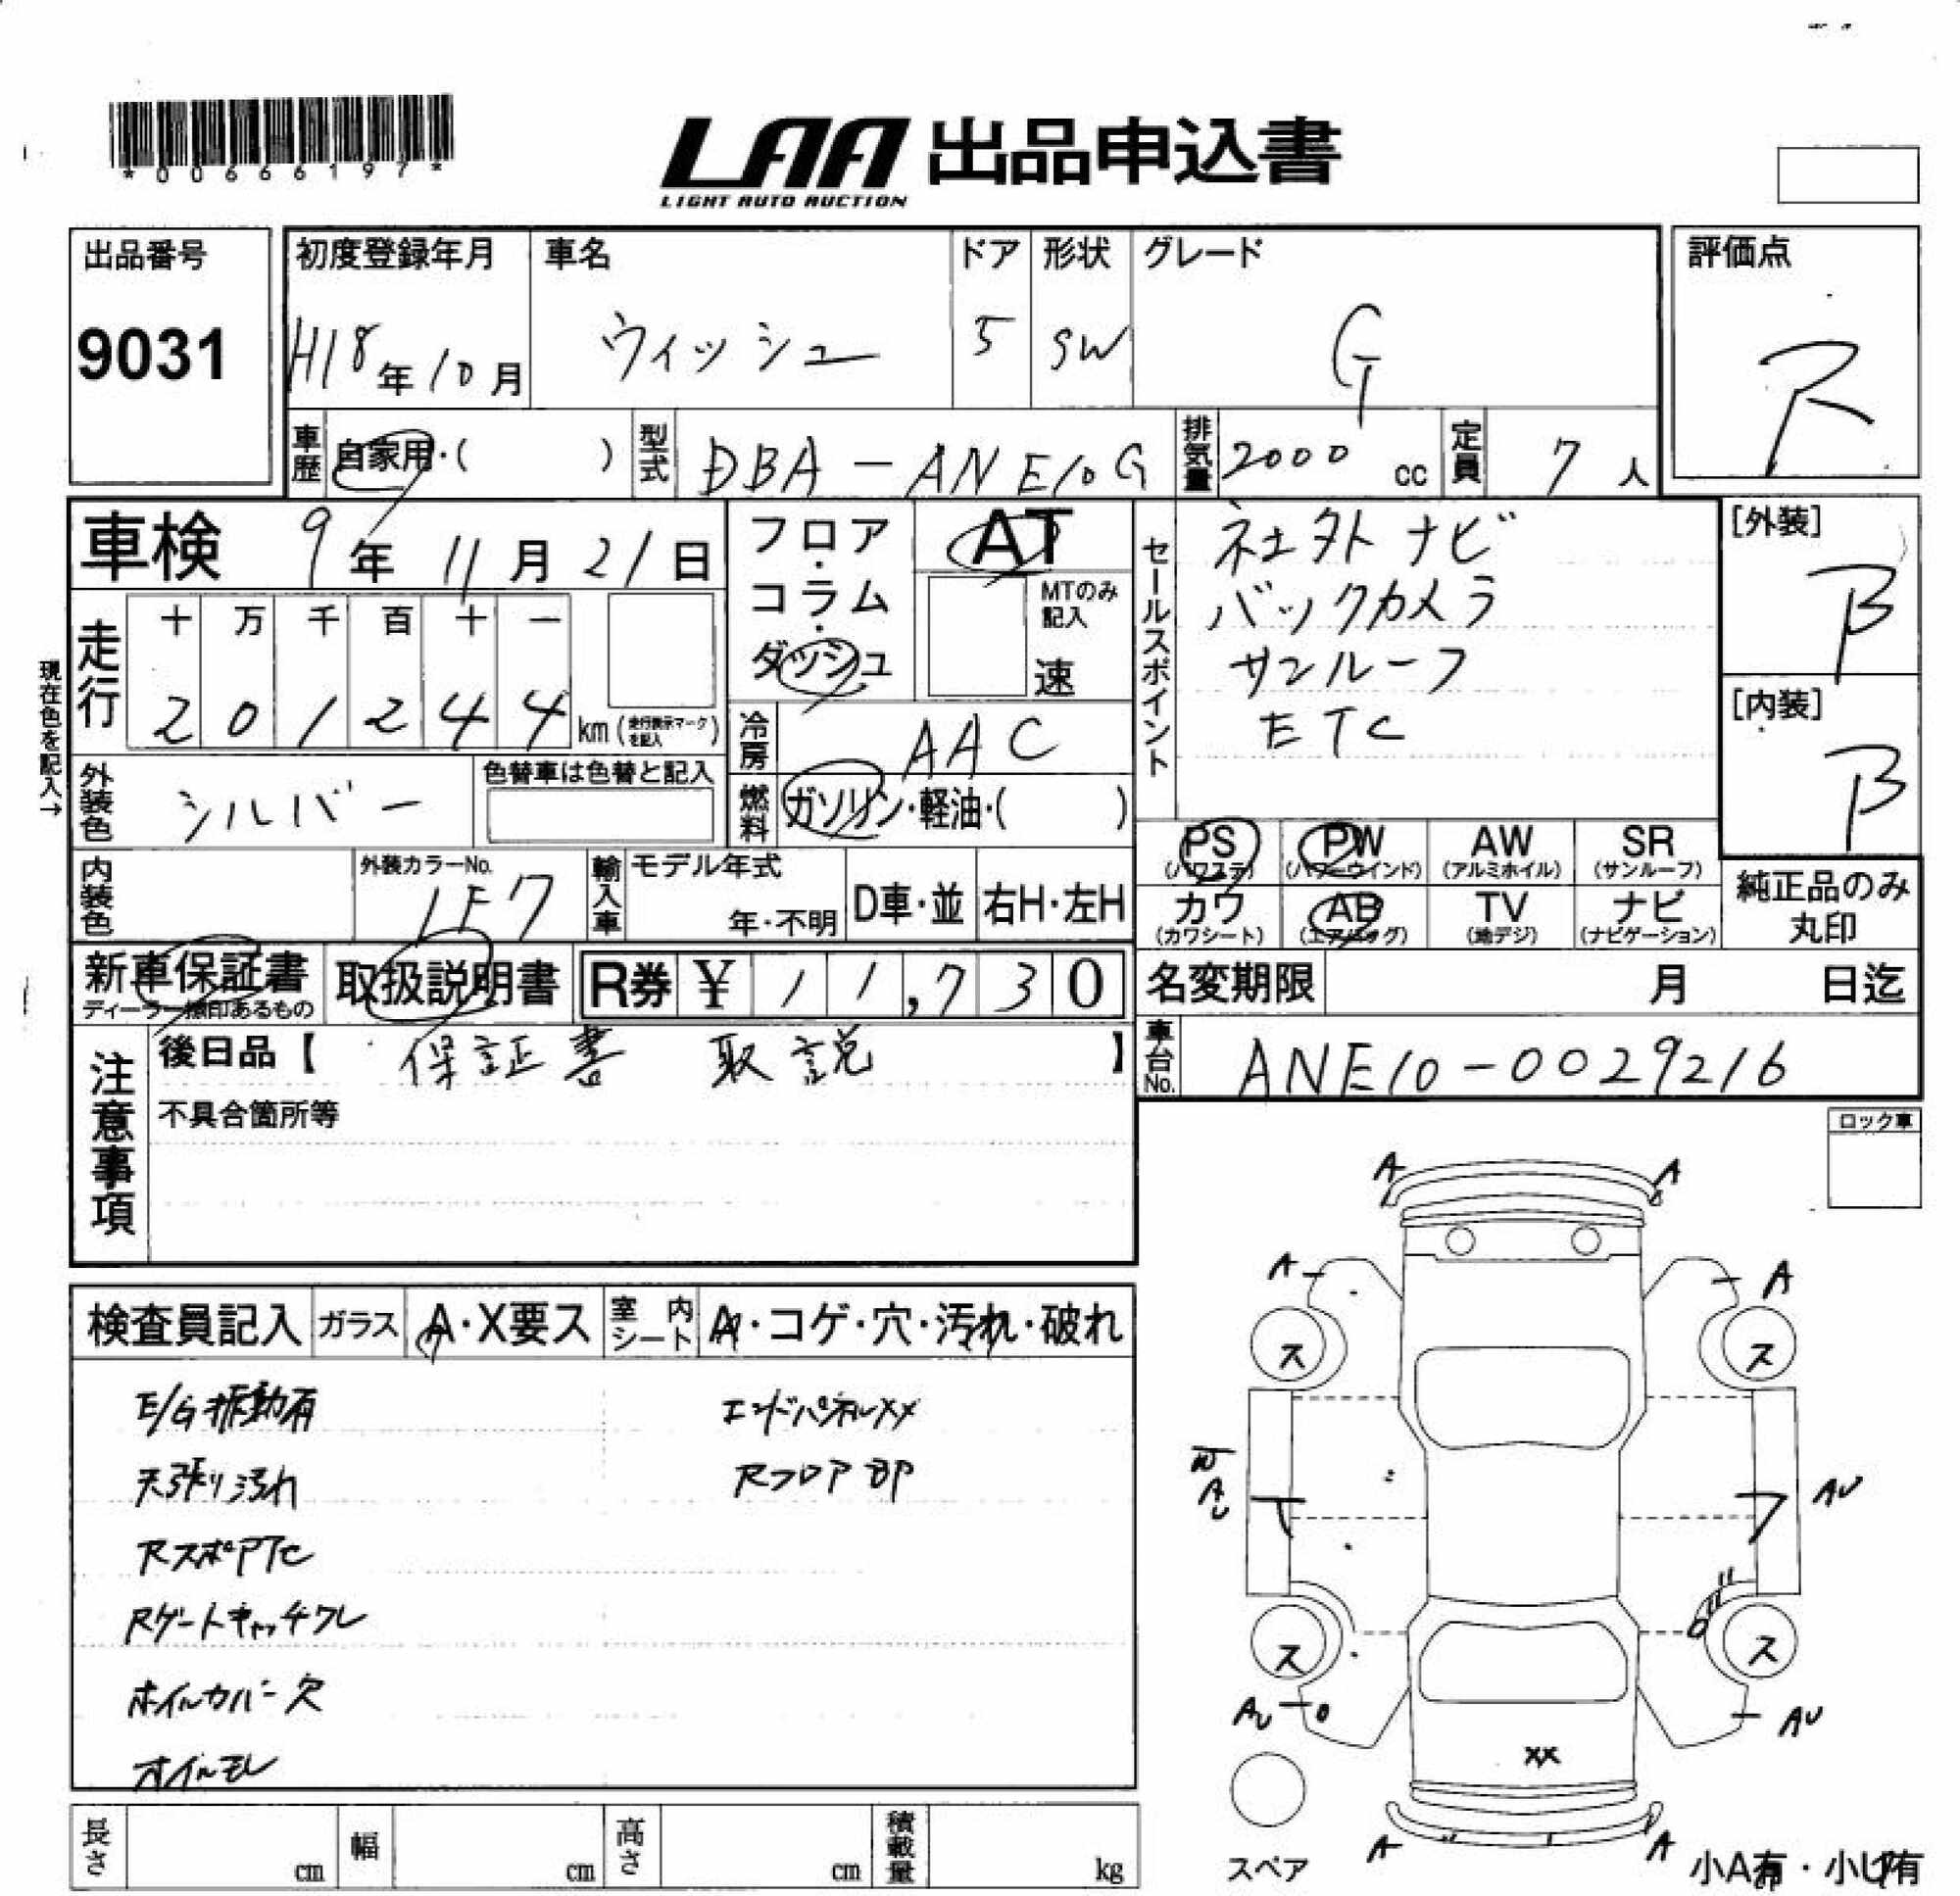 *00666197*
LAA 出品申込書
LIGHT AUTO AUCTION
出品番号 9031
初度登録年月 H18年10月
車名 ウィッシュ
ドア 5
形状 SW
グレード G
評価点 R
車歴 自家用・( )
型式 DBA-ANE10G
排気量 2000 cc
定員 7人
車検 9年11月21日
フロア・コラム・ダッシュ
AT
MTのみ記入 速
セールスポイント
社外ナビ
バックカメラ
サンルーフ
ETC
[外装] B
[内装] B
現在色を記入→
走行 十 万 千 百 十 一
2 0 1 2 4 4 km(走行表示マークを記入)
冷房 AAC
外装色 シルバー
色替車は色替と記入
燃料 ガソリン・軽油・( )
PS (パワステ) PW (パワーウインド) AW (アルミホイル) SR (サンルーフ)
カワ (カワシート) AB (エアバッグ) TV (地デジ) ナビ (ナビゲーション)
純正品のみ丸印
内装色
外装カラーNo. 1F7
輸入車 モデル年式 年・不明 D車・並 右H・左H
新車保証書 ディーラー捺印あるもの
取扱説明書
R券 ¥ 11,730
名変期限 月 日迄
注意事項
後日品【 保証書 取説 】
不具合箇所等
車台No. ANE10-0029216
ロック車
検査員記入 ガラス A・X要ス 室内シート A・コゲ・穴・汚れ・破れ
E/G振動有
天張り汚れ
Rゲートキャッチワレ
ホイルカバー欠
オイルモレ
エンドパネルXX
RフロアBP
A A
A A
ス ス
W
AU AU
ス ス
AU AU
XX
A A
スペア
小A有・小U有
長さ cm 幅 cm 高さ cm 積載量 kg